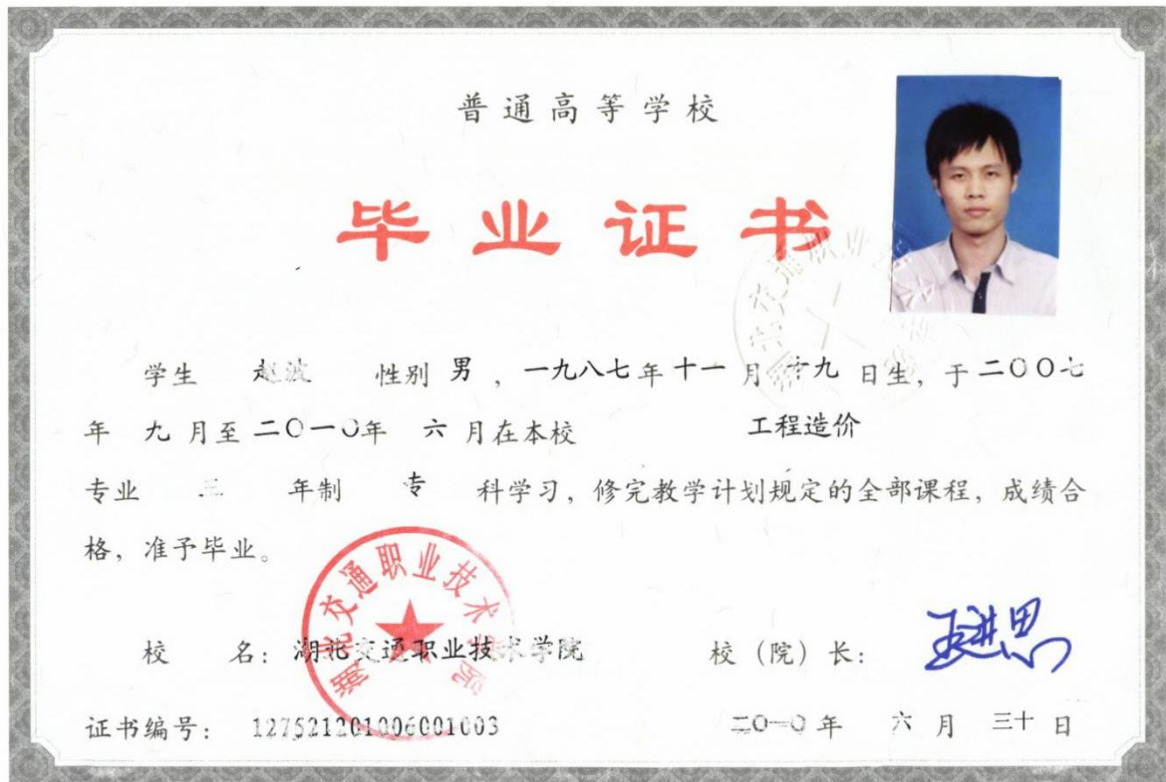 普通高等学校
毕业证书
学生 赵波 性别 男 ，一九八七年十一月十九日生，于二〇〇七
年 九 月至二〇一〇年 六 月在本校 工程造价
专业 三 年制 专 科学习，修完教学计划规定的全部课程，成绩合
格，准予毕业。
湖北交通职业技术学院
校 名：湖北交通职业技术学院 校（院）长：
证书编号： 127521201006001003 二〇一〇年 六 月 三十 日